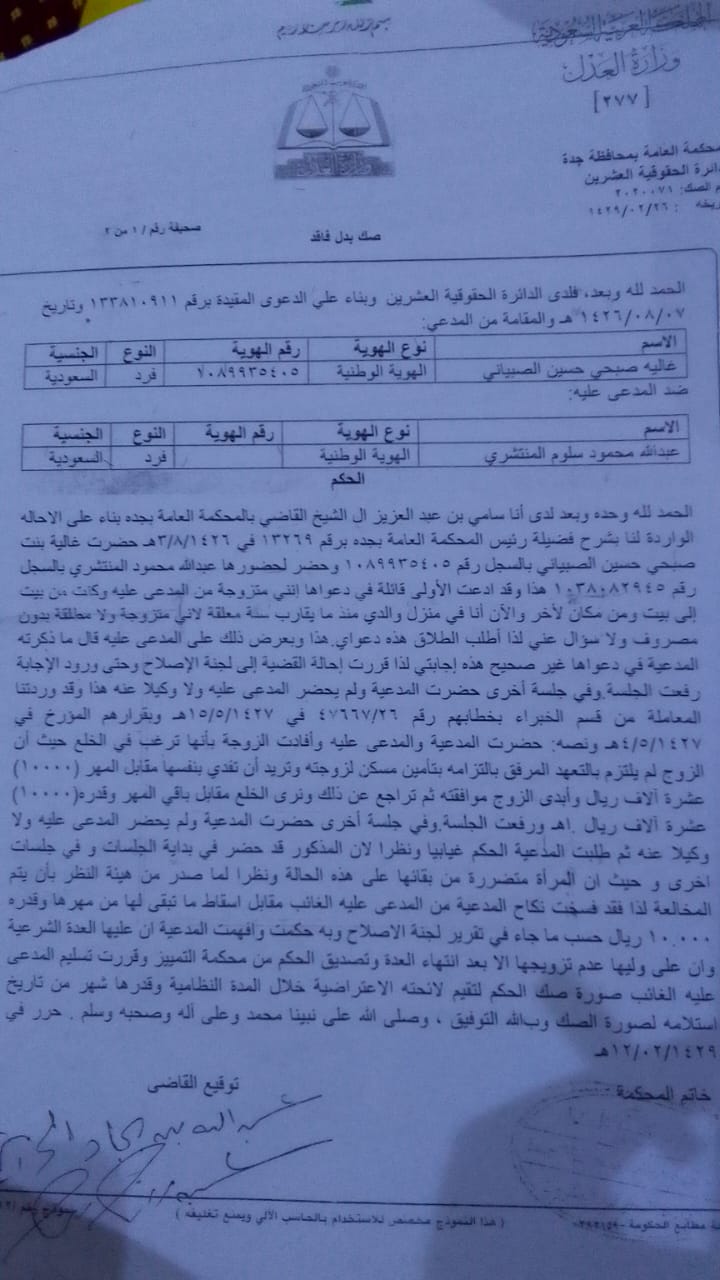 بسم الله الرحمن الرحيم
المملكة العربية السعودية
وزارة العدل
[٢٧٧]
المحكمة العامة بمحافظة جدة
الدائرة الحقوقية العشرين
٢٠٢٠٠٧١ :الصك
١٤٢٩/٠٢/٢٦ :
صحيفة رقم /١ من ٢
صك بدل فاقد
الحمد لله وبعد، فلدى الدائرة الحقوقية العشرين وبناء علي الدعوى المقيدة برقم ١٣٣٨١٠٩١١ وتاريخ
١٤٢٦/٠٨/٠٧ هـ والمقامة من المدعي:
الاسم نوع الهوية رقم الهوية النوع الجنسية
غاليه صبحي حسين الصبياني الهوية الوطنية ١٠٨٩٩٣٥٤٠٥ فرد السعودية
ضد المدعى عليه:
الاسم نوع الهوية رقم الهوية النوع الجنسية
عبدالله محمود سلوم المنتشري الهوية الوطنية فرد السعودية
الحكم
الحمد لله وحده وبعد لدى أنا سامي بن عبد العزيز ال الشيخ القاضي بالمحكمة العامة بجده بناء على الاحاله
الواردة لنا بشرح فضيلة رئيس المحكمة العامة بجده برقم ١٣٢٦٩ في ٣/٨/١٤٢٦هـ حضرت غالية بنت
صبحي حسين الصبياني بالسجل رقم ١٠٨٩٩٣٥٤٠٥ وحضر لحضورها عبدالله محمود المنتشري بالسجل
رقم ١٠٣٨٠٨٢٩٤٥ هذا وقد ادعت الأولى قائلة في دعواها إنني متزوجة من المدعى عليه وكانت من بيت
إلى بيت ومن مكان لأخر والآن أنا في منزل والدي منذ ما يقارب سنة معلقة لاني متزوجة ولا مطلقة بدون
مصروف ولا سؤال عني لذا أطلب الطلاق هذه دعواي.هذا وبعرض ذلك على المدعى عليه قال ما ذكرته
المدعية في دعواها غير صحيح هذه إجابتي لذا قررت إحالة القضية إلى لجنة الإصلاح وحتى ورود الإجابة
رفعت الجلسة.وفي جلسة أخرى حضرت المدعية ولم يحضر المدعى عليه ولا وكيلا عنه هذا وقد وردتنا
المعاملة من قسم الخبراء بخطابهم رقم ٤٧٦٦٧/٢٦ في ١٥/٥/١٤٢٧هـ وبقرارهم المؤرخ في
٤/٥/١٤٢٧هـ ونصه: حضرت المدعية والمدعى عليه وأفادت الزوجة بأنها ترغب في الخلع حيث أن
الزوج لم يلتزم بالتعهد المرفق بالتزامه بتأمين مسكن لزوجته وتريد أن تفدي بنفسها مقابل المهر (١٠٠٠٠)
عشرة آلاف ريال وأبدى الزوج موافقته ثم تراجع عن ذلك ونرى الخلع مقابل باقي المهر وقدره(١٠٠٠٠)
عشرة آلاف ريال .اهـ ورفعت الجلسة.وفي جلسة أخرى حضرت المدعية ولم يحضر المدعى عليه ولا
وكيلا عنه ثم طلبت المدعية الحكم غيابيا ونظرا لان المذكور قد حضر في بداية الجلسات و في جلسات
اخرى و حيث ان المرأة متضررة من بقائها على هذه الحالة ونظرا لما صدر من هيئة النظر بأن يتم
المخالعة لذا فقد فسخت نكاح المدعية من المدعى عليه الغائب مقابل اسقاط ما تبقى لها من مهرها وقدره
١٠.٠٠٠ ريال حسب ما جاء في تقرير لجنة الاصلاح وبه حكمت وافهمت المدعية ان عليها العدة الشرعية
وان على وليها عدم تزويجها الا بعد انتهاء العدة وتصديق الحكم من محكمة التمييز وقررت تسليم المدعى
عليه الغائب صورة صك الحكم لتقيم لائحته الاعتراضية خلال المدة النظامية وقدرها شهر من تاريخ
استلامه لصورة الصك وبالله التوفيق ، وصلى الله على نبينا محمد وعلى آله وصحبه وسلم . حرر في
١٢/٠٢/١٤٢٩هـ
خاتم المحكمة
توقيع القاضى
مطابع الحكومة
( هذا النموذج مخصص للاستخدام بالحاسب الآلي ويمنع تغليفه )